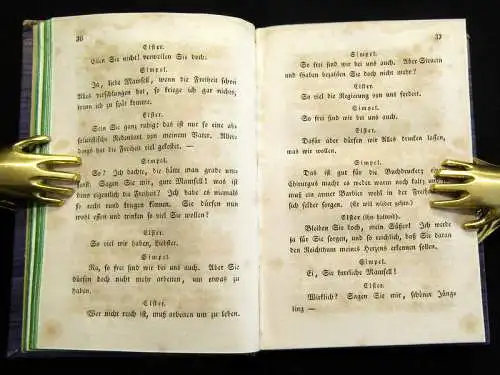 36
Elster.
Eilen Sie nicht! verweilen Sie doch.
Simpel.
Ja, liebe Mamsell, wenn die Freiheit schon
Alles verschlungen hat, so kriege ich gar nichts,
wenn ich zu spät komme.
Elster.
Sein Sie ganz ruhig: das ist nur so eine abs
solutistische Redensart von meinem Vater. Allers
dings hat die Freiheit viel gekostet. —
Simpel.
So? Ich dachte, die hätte man grade ums
sonst. Sagen Sie mir, gute Mamsell! was ist
denn eigentlich die Freiheit? Ich habe es niemals
so recht rund kriegen können. Sie dürfen nun
wohl essen und trinken so viel Sie wollen?
Elster.
So viel wir haben, Liebster.
Simpel.
Na, so frei sind wir bei uns auch. Aber Sie
dürfen doch nicht mehr arbeiten, um etwas zu
haben.
Elster.
Wer nicht reich ist, muß arbeiten um zu leben.
37
Simpel.
So frei sind wir bei uns auch. Aber Steuern
und Gaben bezahlen Sie doch nicht mehr?
Elster.
So viel die Regierung von uns fordert.
Simpel.
So frei sind wir bei uns auch.
Elster.
Dafür aber dürfen wir Alles drucken lassen,
was wir wollen.
Simpel.
Das ist gut für die Buchdrucker;
Chirurgus macht es weder warm noch kalt;
muß ein armer Barbier wohl in der Freiheit
sich selber sorgen. (Er will wieder gehen.)
Elster (ihn haltend).
Bleiben Sie doch, mein Süßer! Ich werde
ja für Sie sorgen, und so reichlich, daß Sie daran
den Reichthum meines Herzens erkennen sollen.
Simpel.
Ei, Sie herrliche Mamsell!
Elster.
Wirklich? Sagen Sie mir, schöner Jüng
ling —